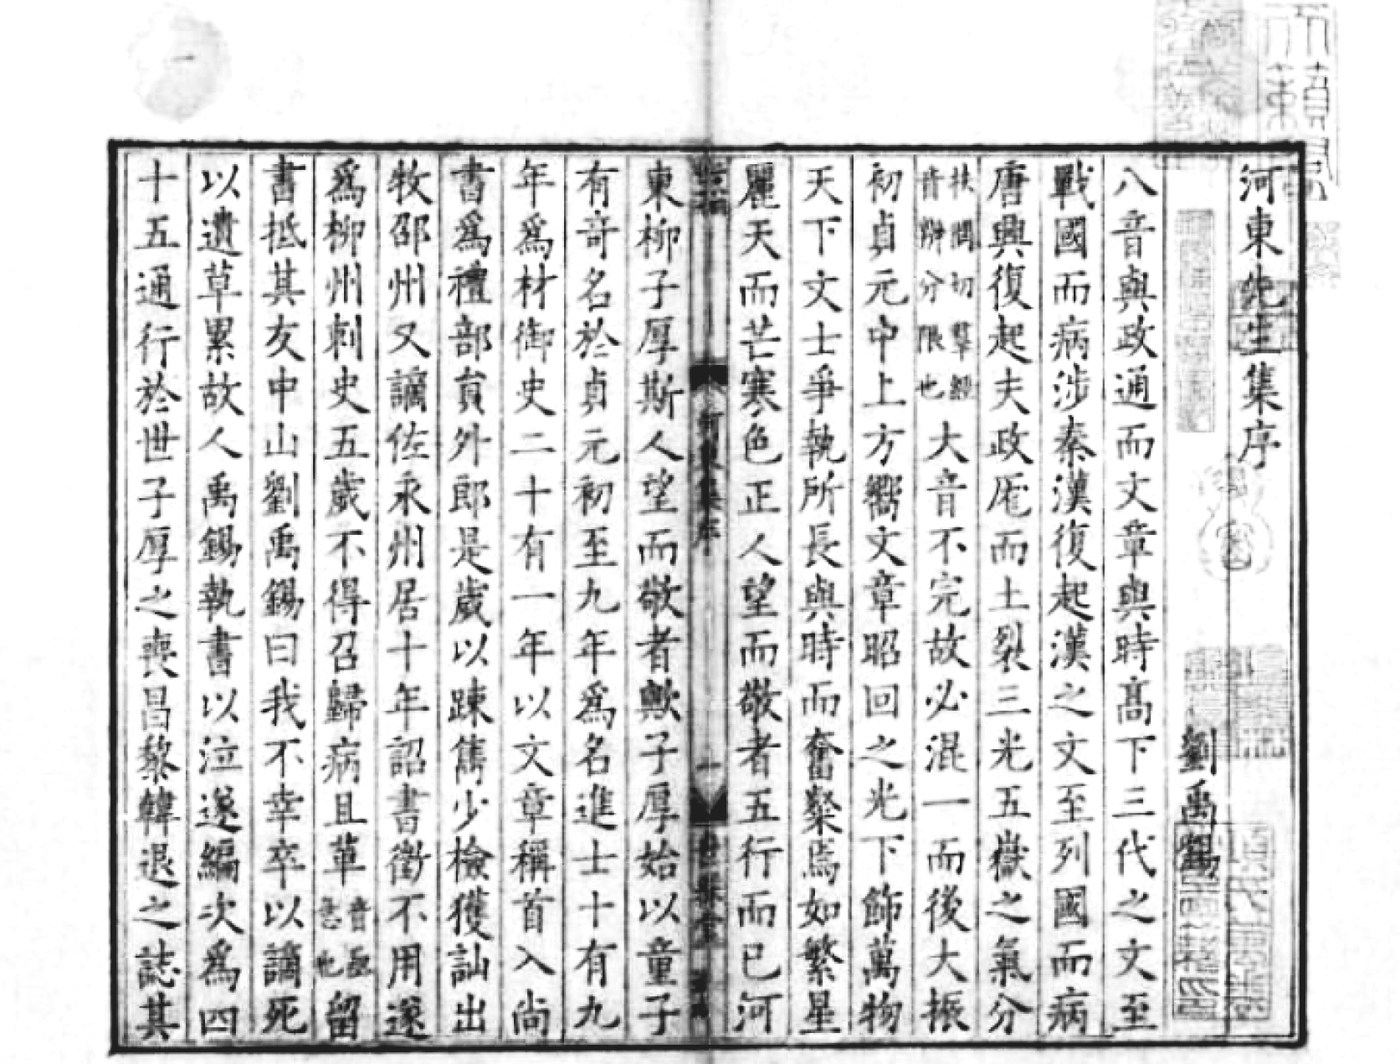 河東先生集序
劉禹錫
八音與政通而文章與時髙下三代之文至
戰國而病涉秦漢復起漢之文至列國而病
唐興復起夫政厖而土裂三光五嶽之氣分
扶問切羣經音辨分限也大音不完故必混一而後大振
初貞元中上方嚮文章昭回之光下飾萬物
天下文士爭執所長與時而奮粲焉如繁星
麗天而芒寒色正人望而敬者五行而已河
東柳子厚斯人望而敬者歟子厚始以童子
有竒名於貞元初至九年爲名進士十有九
年爲材御史二十有一年以文章稱首入尚
書爲禮部貟外郎是歲以踈雋少檢獲訕出
牧邵州又謫佐永州居十年詔書徵不用遂
爲柳州刺史五歲不得召歸病且革音亟急也留
書抵其友中山劉禹錫曰我不幸卒以謫死
以遺草累故人禹錫執書以泣遂編次爲四
十五通行於世子厚之喪昌黎韓退之誌其
河東集序
世綵堂